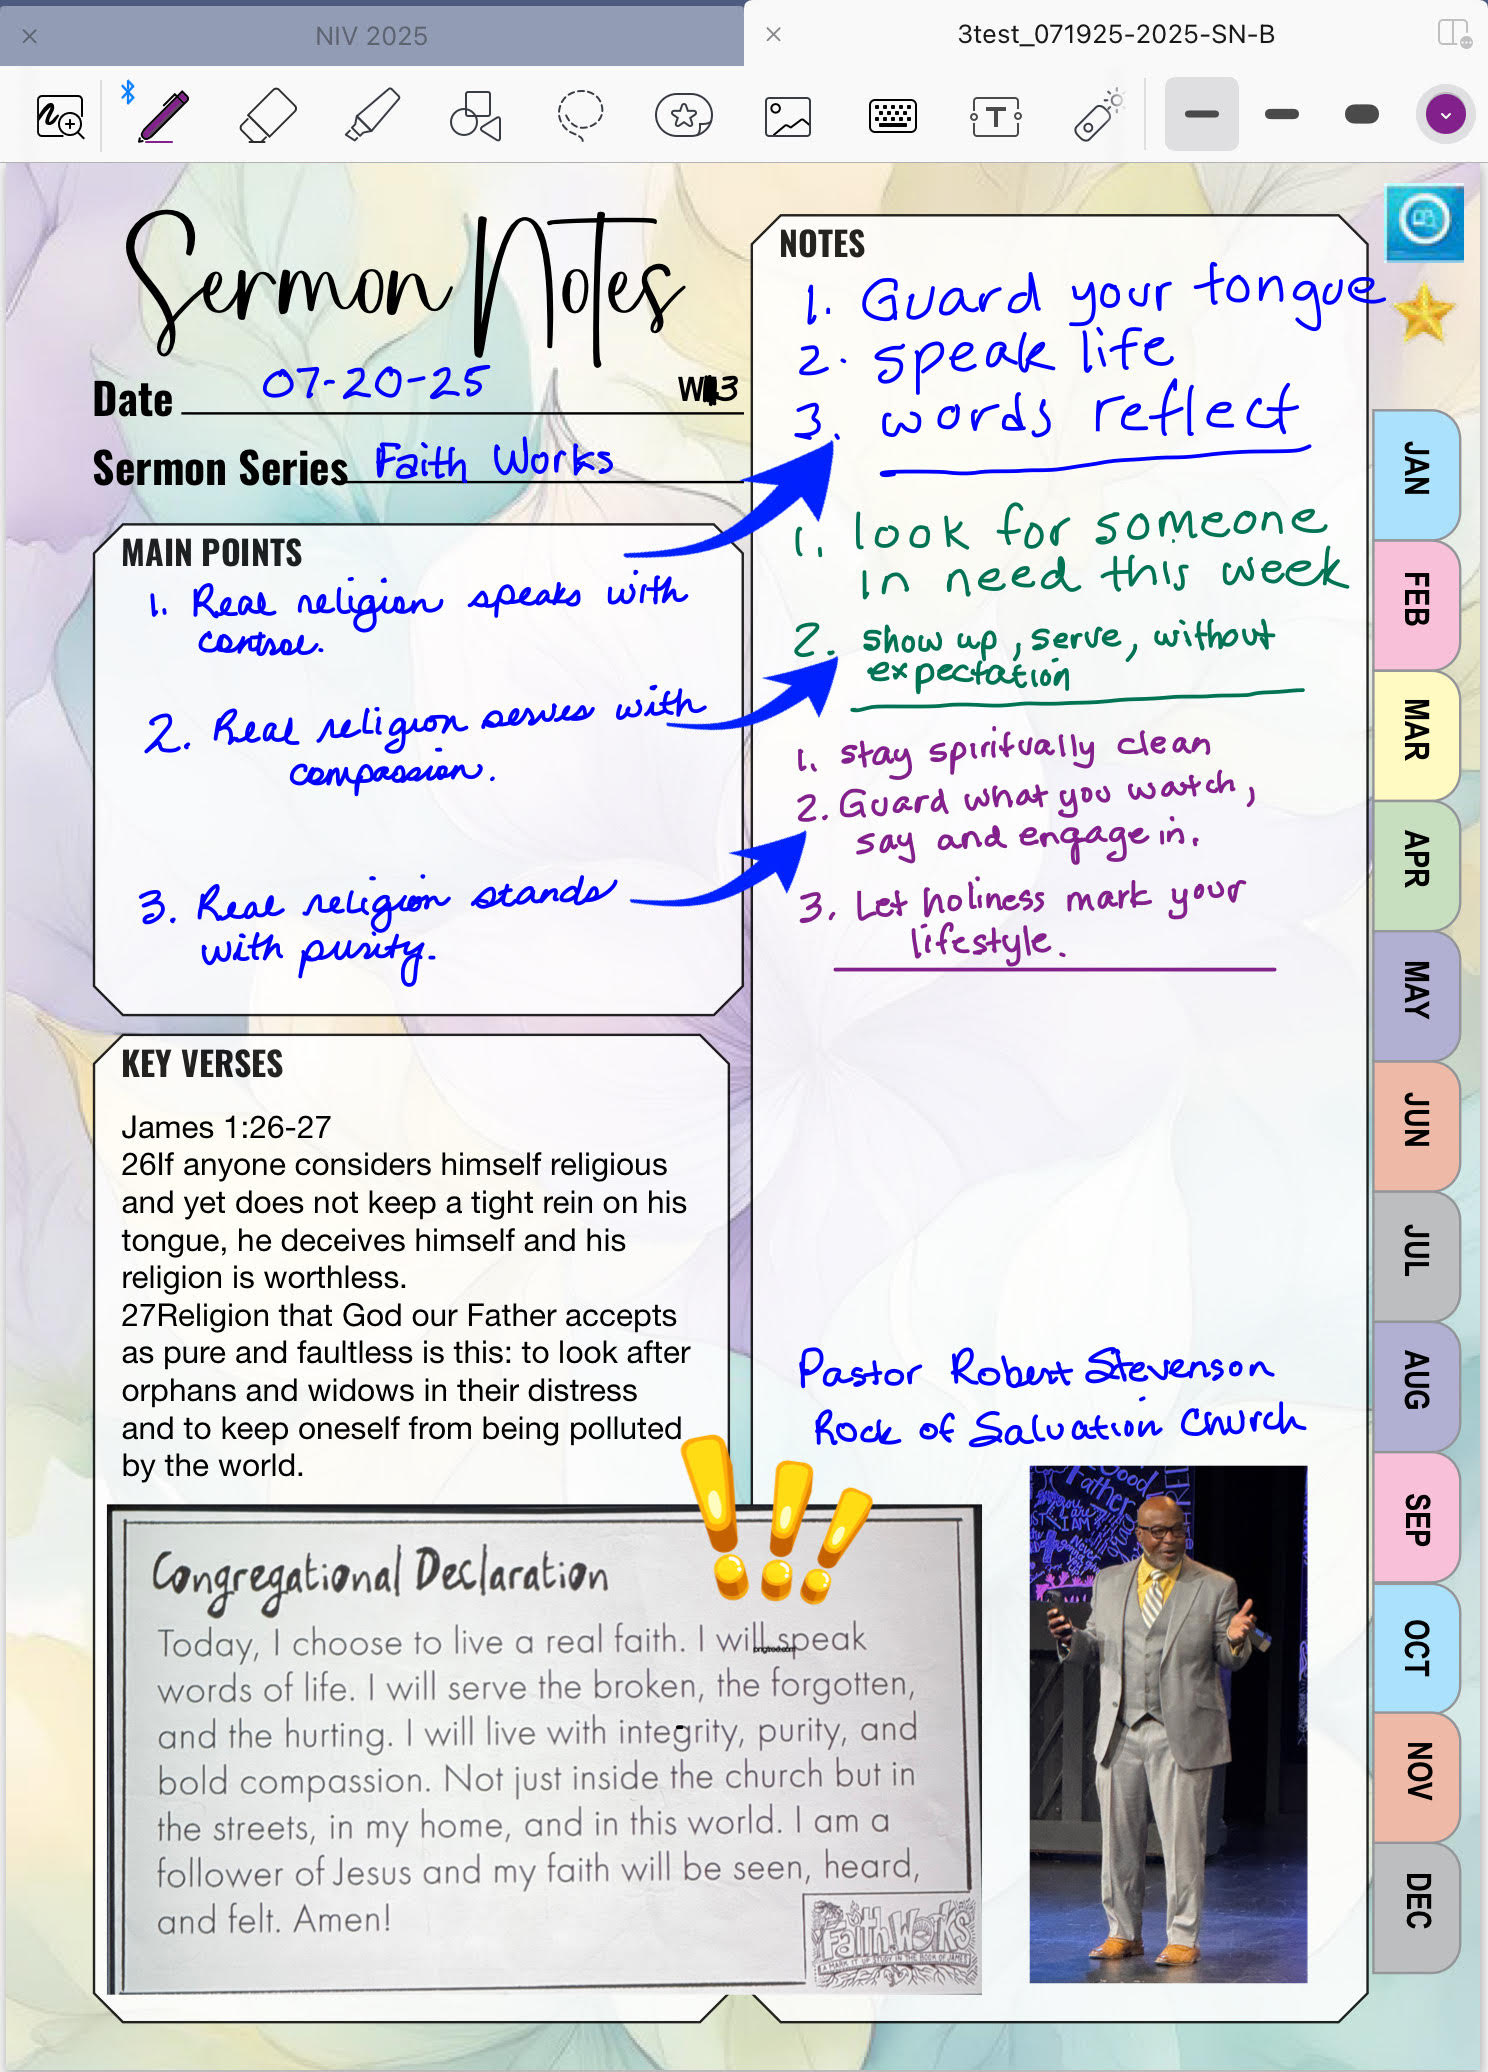 NIV 2025
3test_071925-2025-SN-B
Sermon Notes
Date 07-20-25 W 3
Sermon Series Faith Works
MAIN POINTS
1. Real religion speaks with
control.
2. Real religion serves with
compassion.
3. Real religion stands
with purity.
KEY VERSES
James 1:26-27
26If anyone considers himself religious
and yet does not keep a tight rein on his
tongue, he deceives himself and his
religion is worthless.
27Religion that God our Father accepts
as pure and faultless is this: to look after
orphans and widows in their distress
and to keep oneself from being polluted
by the world.
Congregational Declaration
Today, I choose to live a real faith. I will speak
words of life. I will serve the broken, the forgotten,
and the hurting. I will live with integrity, purity, and
bold compassion. Not just inside the church but in
the streets, in my home, and in this world. I am a
follower of Jesus and my faith will be seen, heard,
and felt. Amen!
Faith Works
A MARK IT UP STUDY IN THE BOOK OF JAMES
NOTES
1. Guard your tongue
2. speak life
3. words reflect
1. look for someone
in need this week
2. show up, serve, without
expectation
1. stay spiritually clean
2. Guard what you watch,
say and engage in.
3. Let holiness mark your
lifestyle.
Pastor Robert Stevenson
Rock of Salvation Church
Good
Father
I AM
JAN
FEB
MAR
APR
MAY
JUN
JUL
AUG
SEP
OCT
NOV
DEC